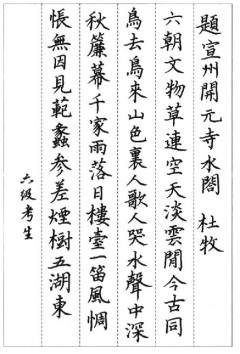 題宣州開元寺水閣　杜牧
六朝文物草連空天淡雲閒今古同
鳥去鳥來山色裏人歌人哭水聲中深
秋簾幕千家雨落日樓臺一笛風惆
悵無因見範蠡參差煙樹五湖東
六级考生